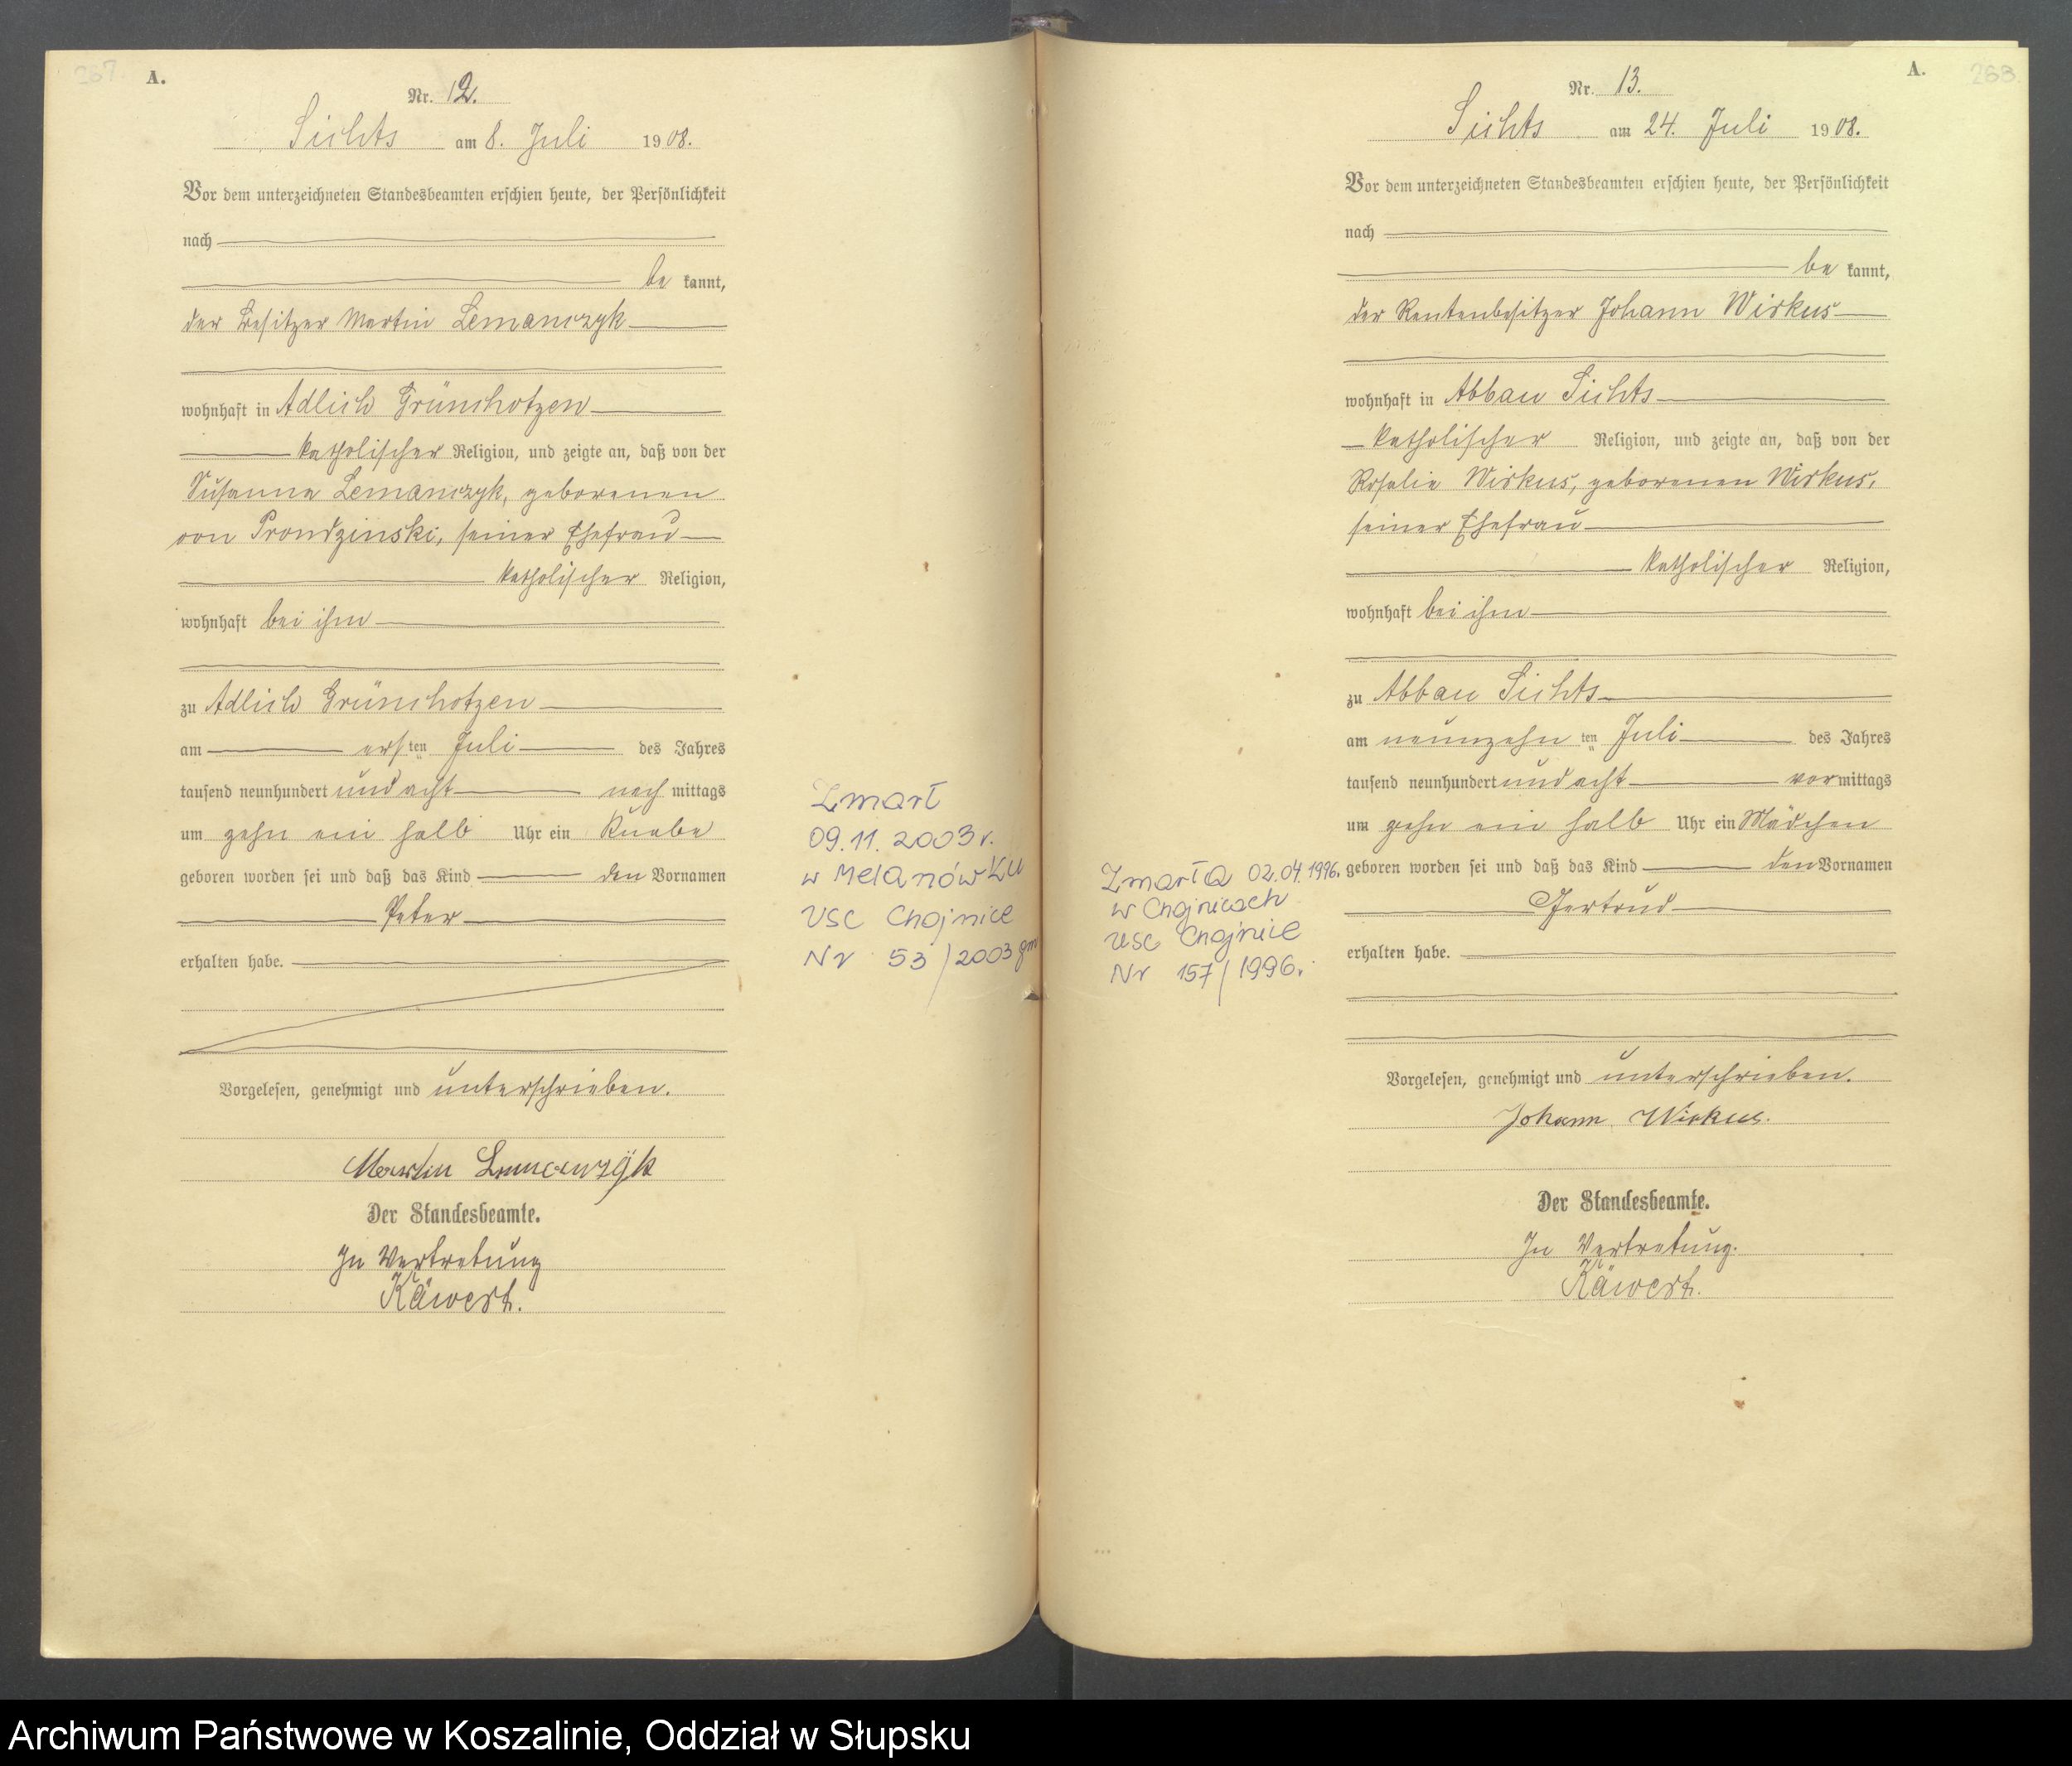 267
A.
Nr. 12.
Sichts am 8. Juli 1908.
Vor dem unterzeichneten Standesbeamten erschien heute, der Persönlichkeit
nach
be kannt,
der Besitzer Martin Lemanczyk
wohnhaft in Adlich Grünchotzen
katholischer Religion, und zeigte an, daß von der
Susanna Lemanczyk, geborenen
von Prondzinski, seiner Ehefrau
katholischer Religion,
wohnhaft bei ihm
zu Adlich Grünchotzen
am ersten Juli des Jahres
tausend neunhundert und acht nach mittags
um zehn ein halb Uhr ein Knabe
geboren worden sei und daß das Kind den Vornamen
Peter
erhalten habe.
Vorgelesen, genehmigt und unterschrieben.
Martin Lemanczyk
Der Standesbeamte.
In Vertretung
Käwert.
Zmarł
09.11.2003 r.
w Melanówku
USC Chojnice
Nr 53/2003 gm
A.
268
Nr. 13.
Sichts am 24. Juli 1908.
Vor dem unterzeichneten Standesbeamten erschien heute, der Persönlichkeit
nach
be kannt,
der Rentenbesitzer Johann Wirkus
wohnhaft in Abbau Sichts
katholischer Religion, und zeigte an, daß von der
Rosalie Wirkus, geborenen Wirkus,
seiner Ehefrau
katholischer Religion,
wohnhaft bei ihm
zu Abbau Sichts
am neunzehn ten Juli des Jahres
tausend neunhundert und acht vormittags
um zehn ein halb Uhr ein Mädchen
geboren worden sei und daß das Kind den Vornamen
Gertrud
erhalten habe.
Vorgelesen, genehmigt und unterschrieben.
Johann Wirkus.
Der Standesbeamte.
In Vertretung.
Käwert.
Zmarła 02.04.1996.
w Chojnicach
USC Chojnice
Nr 157/1996.
Archiwum Państwowe w Koszalinie, Oddział w Słupsku